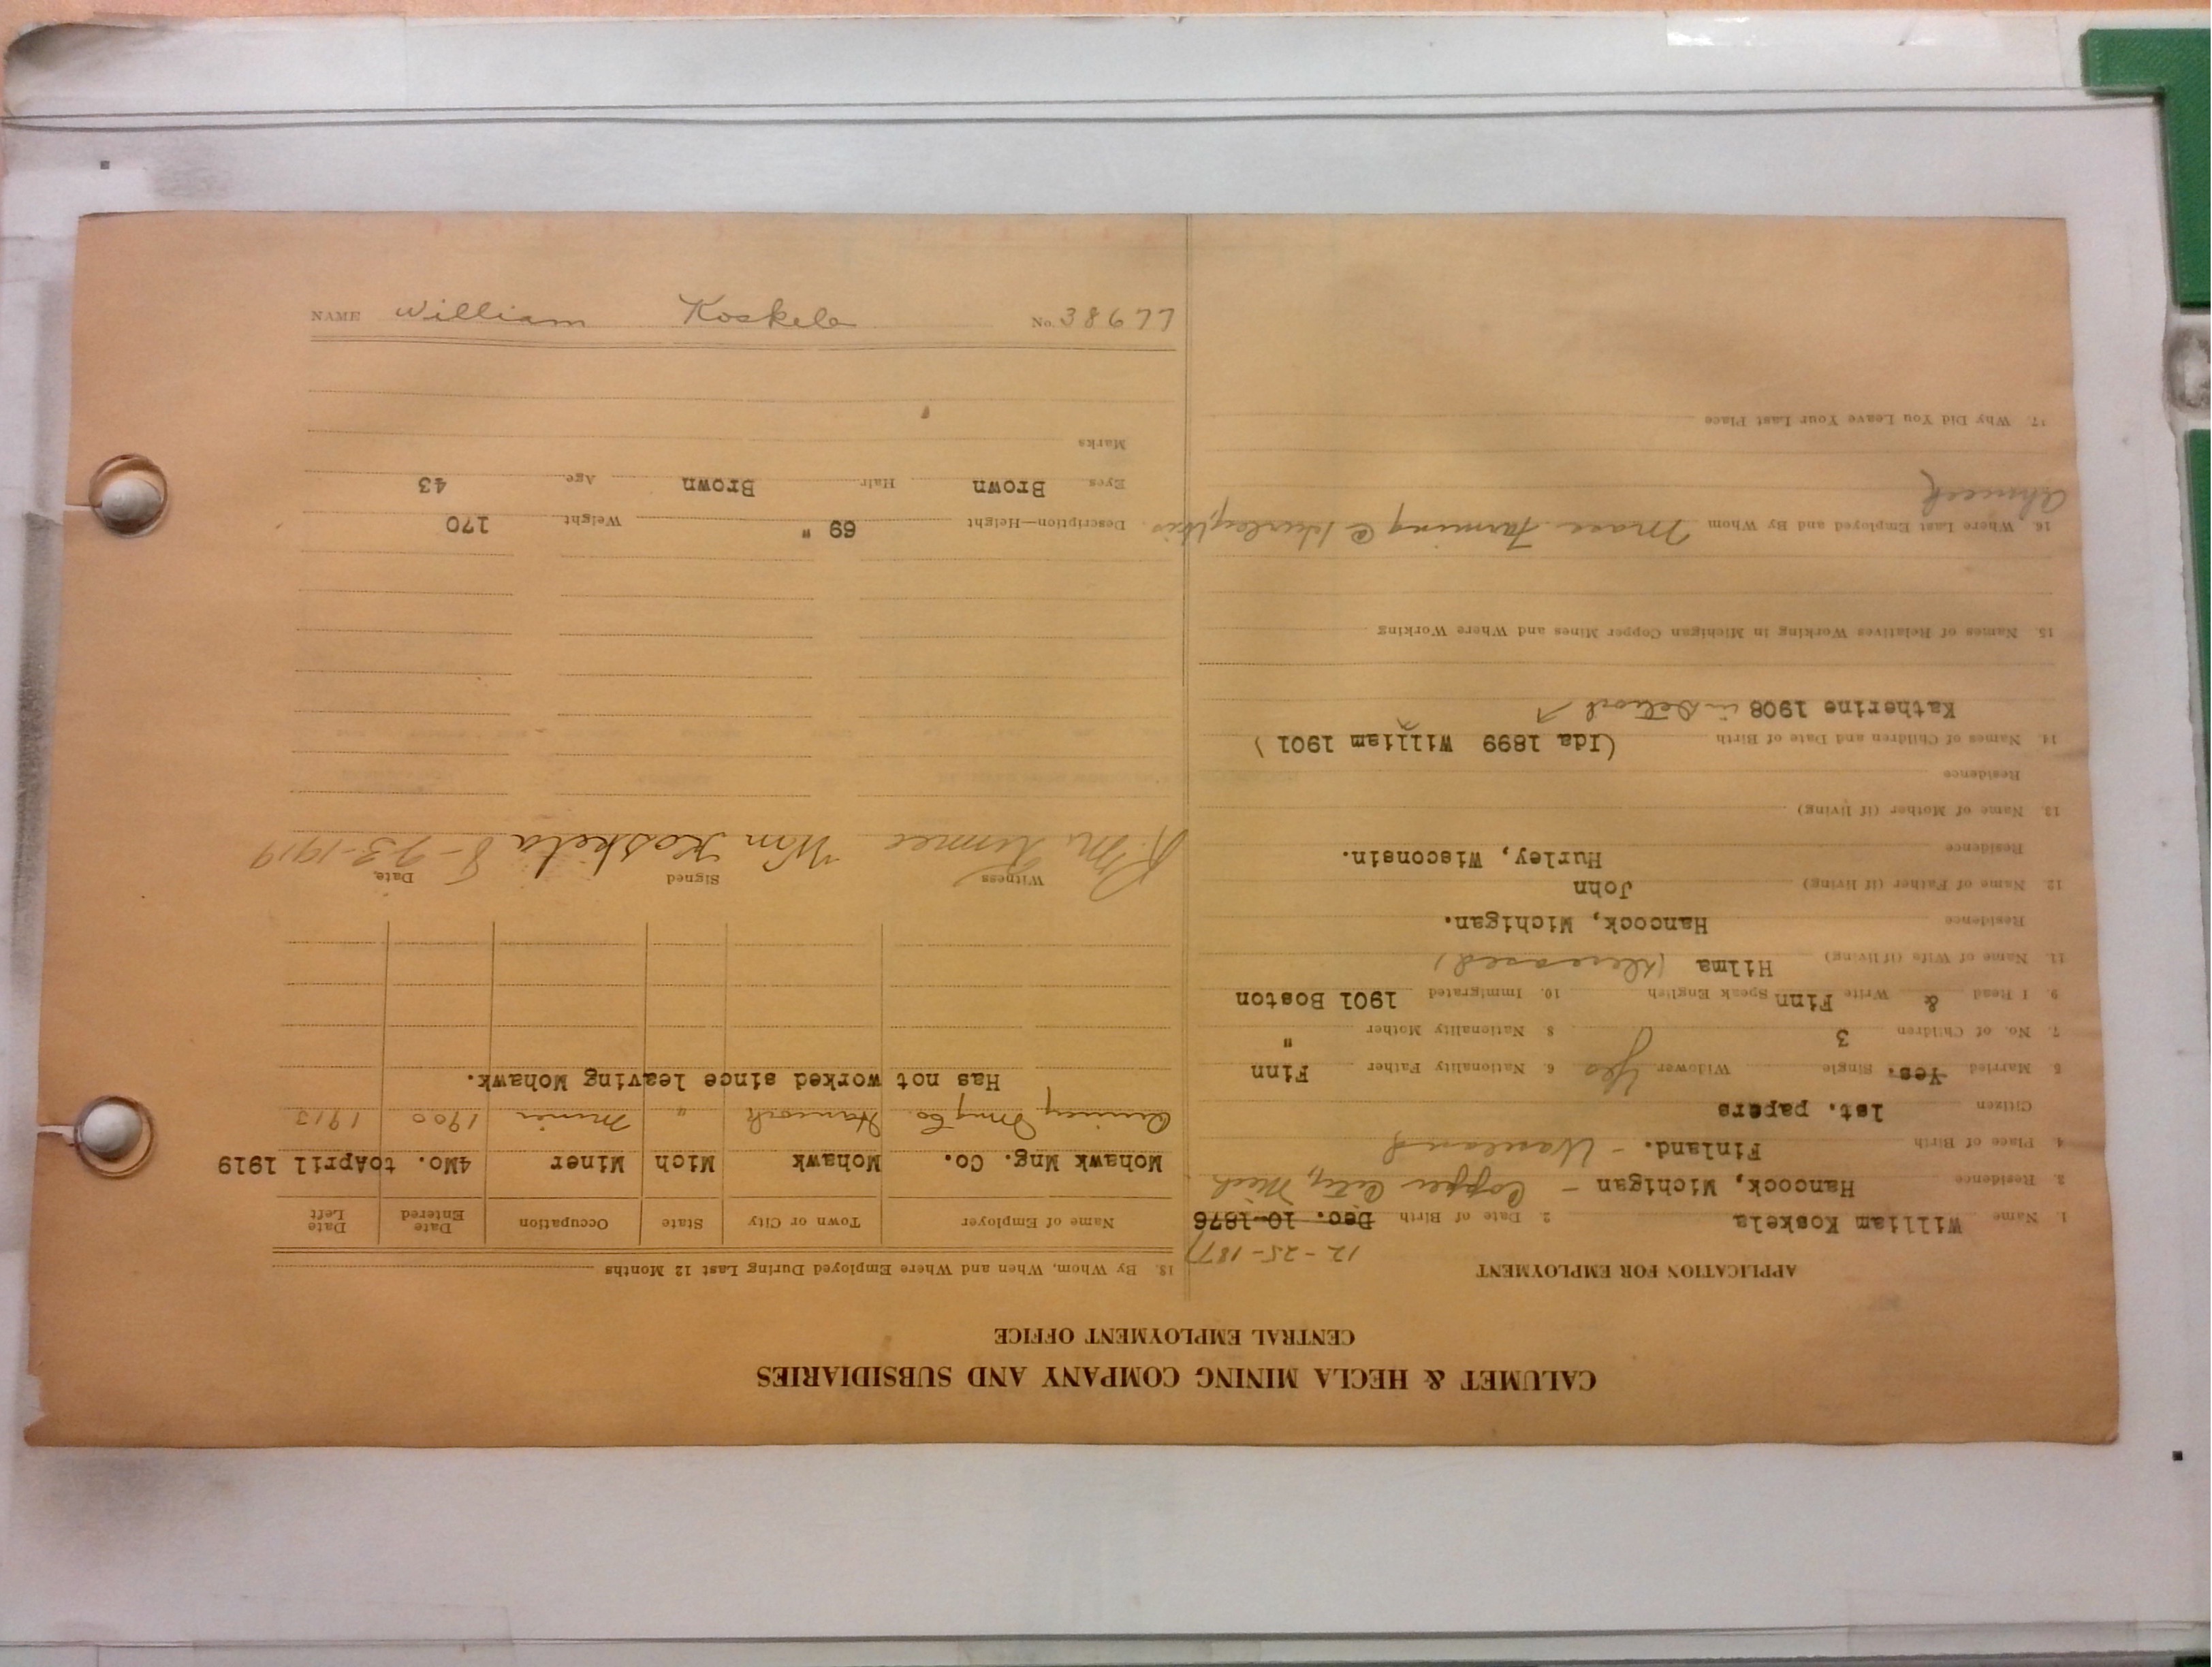 CALUMET & HECLA MINING COMPANY AND SUBSIDIARIES
CENTRAL EMPLOYMENT OFFICE
APPLICATION FOR EMPLOYMENT
12-25-187
1. Name William Koskela 2. Date of Birth Dec. 10-1876
3. Residence Hancock, Michigan - Copper City, Mich.
4. Place of Birth Finland. -
Citizen 1st. papers
5. Married Yes. Single Widower Yes 6. Nationality Father Finn
7. No. of Children 3 8 Nationality Mother "
9. I Read & Write Finn Speak English 10. Immigrated 1901 Boston
11. Name of Wife (if living) Hilma (Deceased)
Residence Hancock, Michigan.
12. Name of Father (if living) John
Residence Hurley, Wisconsin.
13. Name of Mother (if living)
Residence
14. Names of Children and Date of Birth (Ida 1899 William 1901)
Katherine 1908 in School
15. Names of Relatives Working in Michigan Copper Mines and Where Working
16. Where Last Employed and By Whom Farming @ Hurley, Wis.
Ahmeek
17. Why Did You Leave Your Last Place
18. By Whom, When and Where Employed During Last 12 Months
Name of Employer Town or City State Occupation Date Entered Date Left
Mohawk Mng. Co. Mohawk Mich Miner 4Mo. to April 1919
Quincy Mng Co. Hancock " miner 1900 1913
Has not worked since leaving Mohawk.
Witness Signed Date
Wm Koskela 8-23-1919
Description—Height 69 " Weight 170
Eyes Brown Hair Brown Age 43
Marks
NAME William Koskela No. 38677